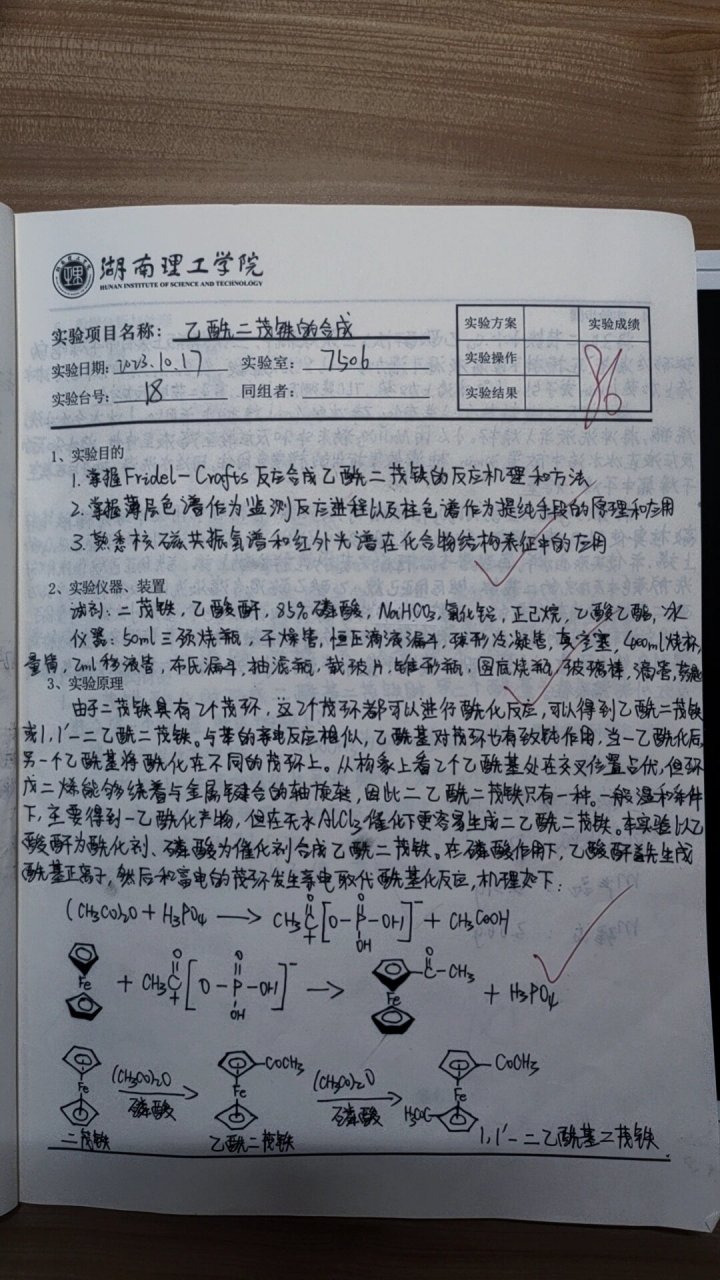 湖南理工学院
HUNAN INSTITUTE OF SCIENCE AND TECHNOLOGY
实验项目名称: 乙酰二茂铁的合成
实验日期: 2023.10.17 实验室: 7506
实验台号: 18 同组者:
实验方案 实验成绩
实验操作 86
实验结果
1、实验目的
1.掌握Fridel-Crafts反应合成乙酰二茂铁的反应机理和方法
2.掌握薄层色谱作为监测反应进程以及柱色谱作为提纯手段的原理和应用
3.熟悉核磁共振氢谱和红外光谱在化合物结构表征中的应用
2、实验仪器、装置
试剂:二茂铁,乙酸酐,85%磷酸,NaHCO3,氧化铝,正己烷,乙酸乙酯,冰
仪器:50ml三颈烧瓶,干燥管,恒压滴液漏斗,球形冷凝管,真空塞,400ml烧杯,
量筒,2ml移液管,布氏漏斗,抽滤瓶,载玻片,锥形瓶,圆底烧瓶,玻璃棒,滴管,
3、实验原理
由于二茂铁具有2个茂环,这2个茂环都可以进行酰化反应,可以得到乙酰二茂铁
或1,1'-二乙酰二茂铁。与苯的亲电反应相似,乙酰基对茂环也有致钝作用,当一乙酰化后,
另一个乙酰基将酰化在不同的茂环上。从构象上看2个乙酰基处在交叉位置占优,但环
戊二烯能够绕着与金属键合的轴旋转,因此二乙酰二茂铁只有一种。一般温和条件
下,主要得到一乙酰化产物,但在无水AlCl3催化下更容易生成二乙酰二茂铁。本实验以乙
酸酐为酰化剂、磷酸为催化剂合成乙酰二茂铁。在磷酸作用下,乙酸酐首先生成
酰基正离子,然后和富电的茂环发生亲电取代酰基化反应,机理如下:
(CH3CO)2O + H3PO4 → CH3C [O-P-OH]⁻ + CH3COOH
O + O OH
Fe + CH3C [O-P-OH]⁻ → Fe C-CH3 + H3PO4
O + O OH O
Fe (CH3CO)2O 磷酸 Fe COCH3 (CH3CO)2O 磷酸 Fe COCH3 H3COC
二茂铁 乙酰二茂铁 1,1'-二乙酰基二茂铁